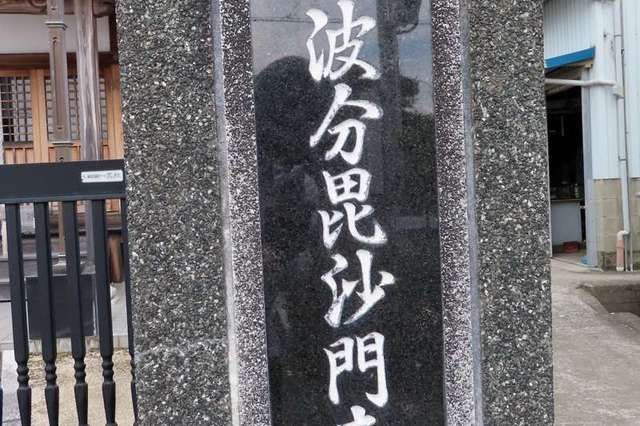 波分毘沙門